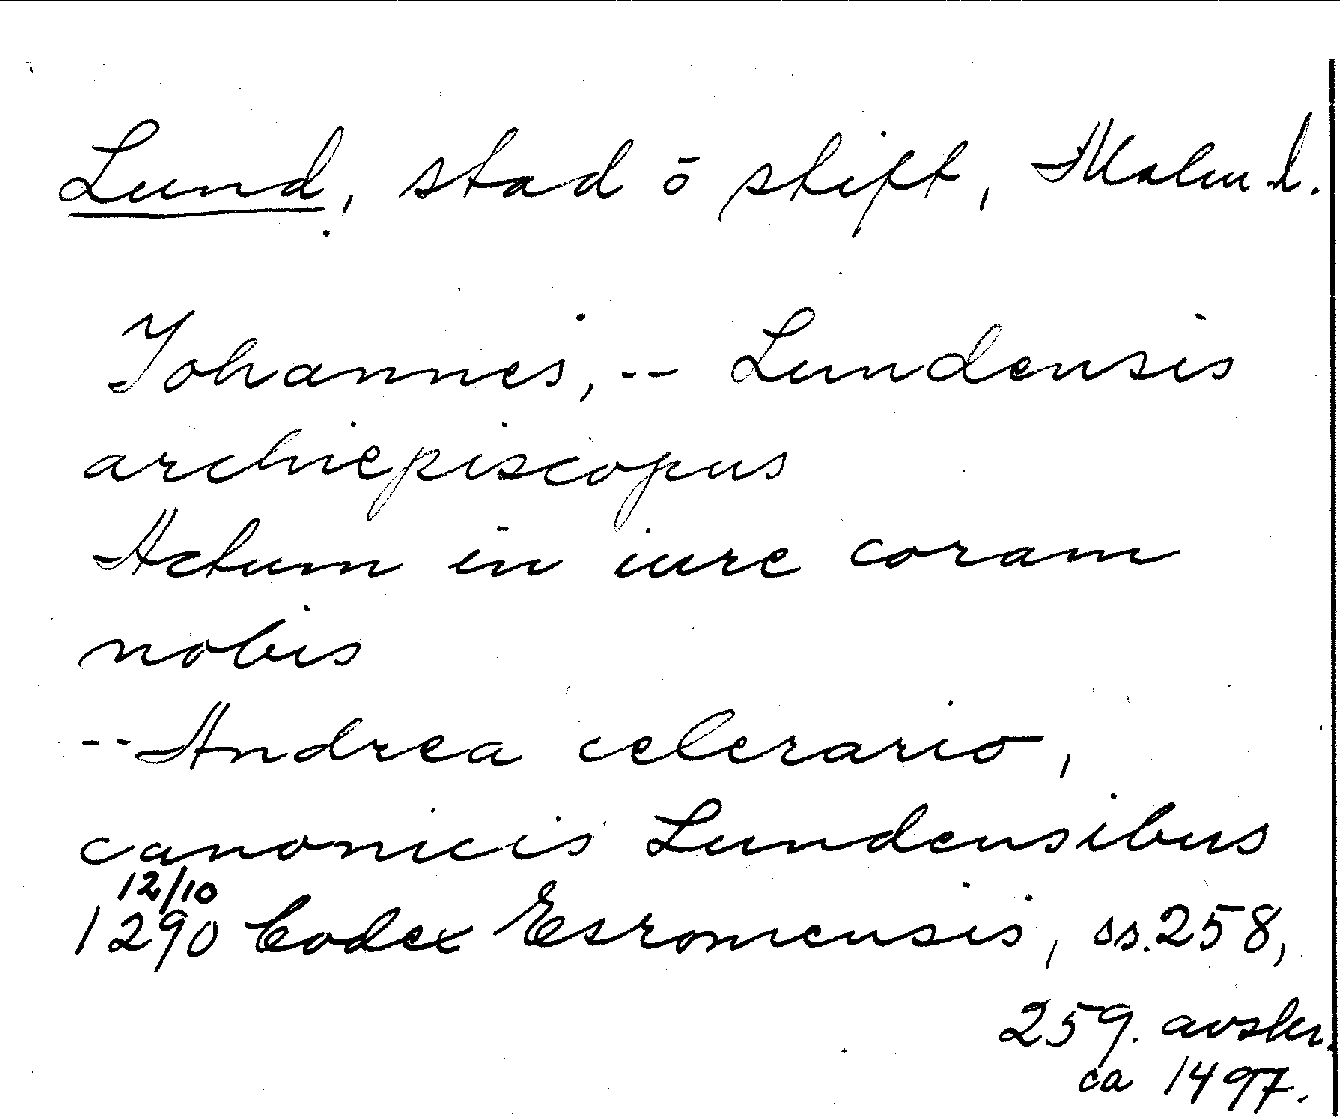 Lund, stad ō stift, Malm. l.
Johannes, -- Lundensis
archiepiscopus
Actum in iure coram
nobis
-- Andrea celerario,
canonicis Lundensibus
12/10
1290 Codex Esromensis, ss. 258,
259. avskr.
ca 1497.